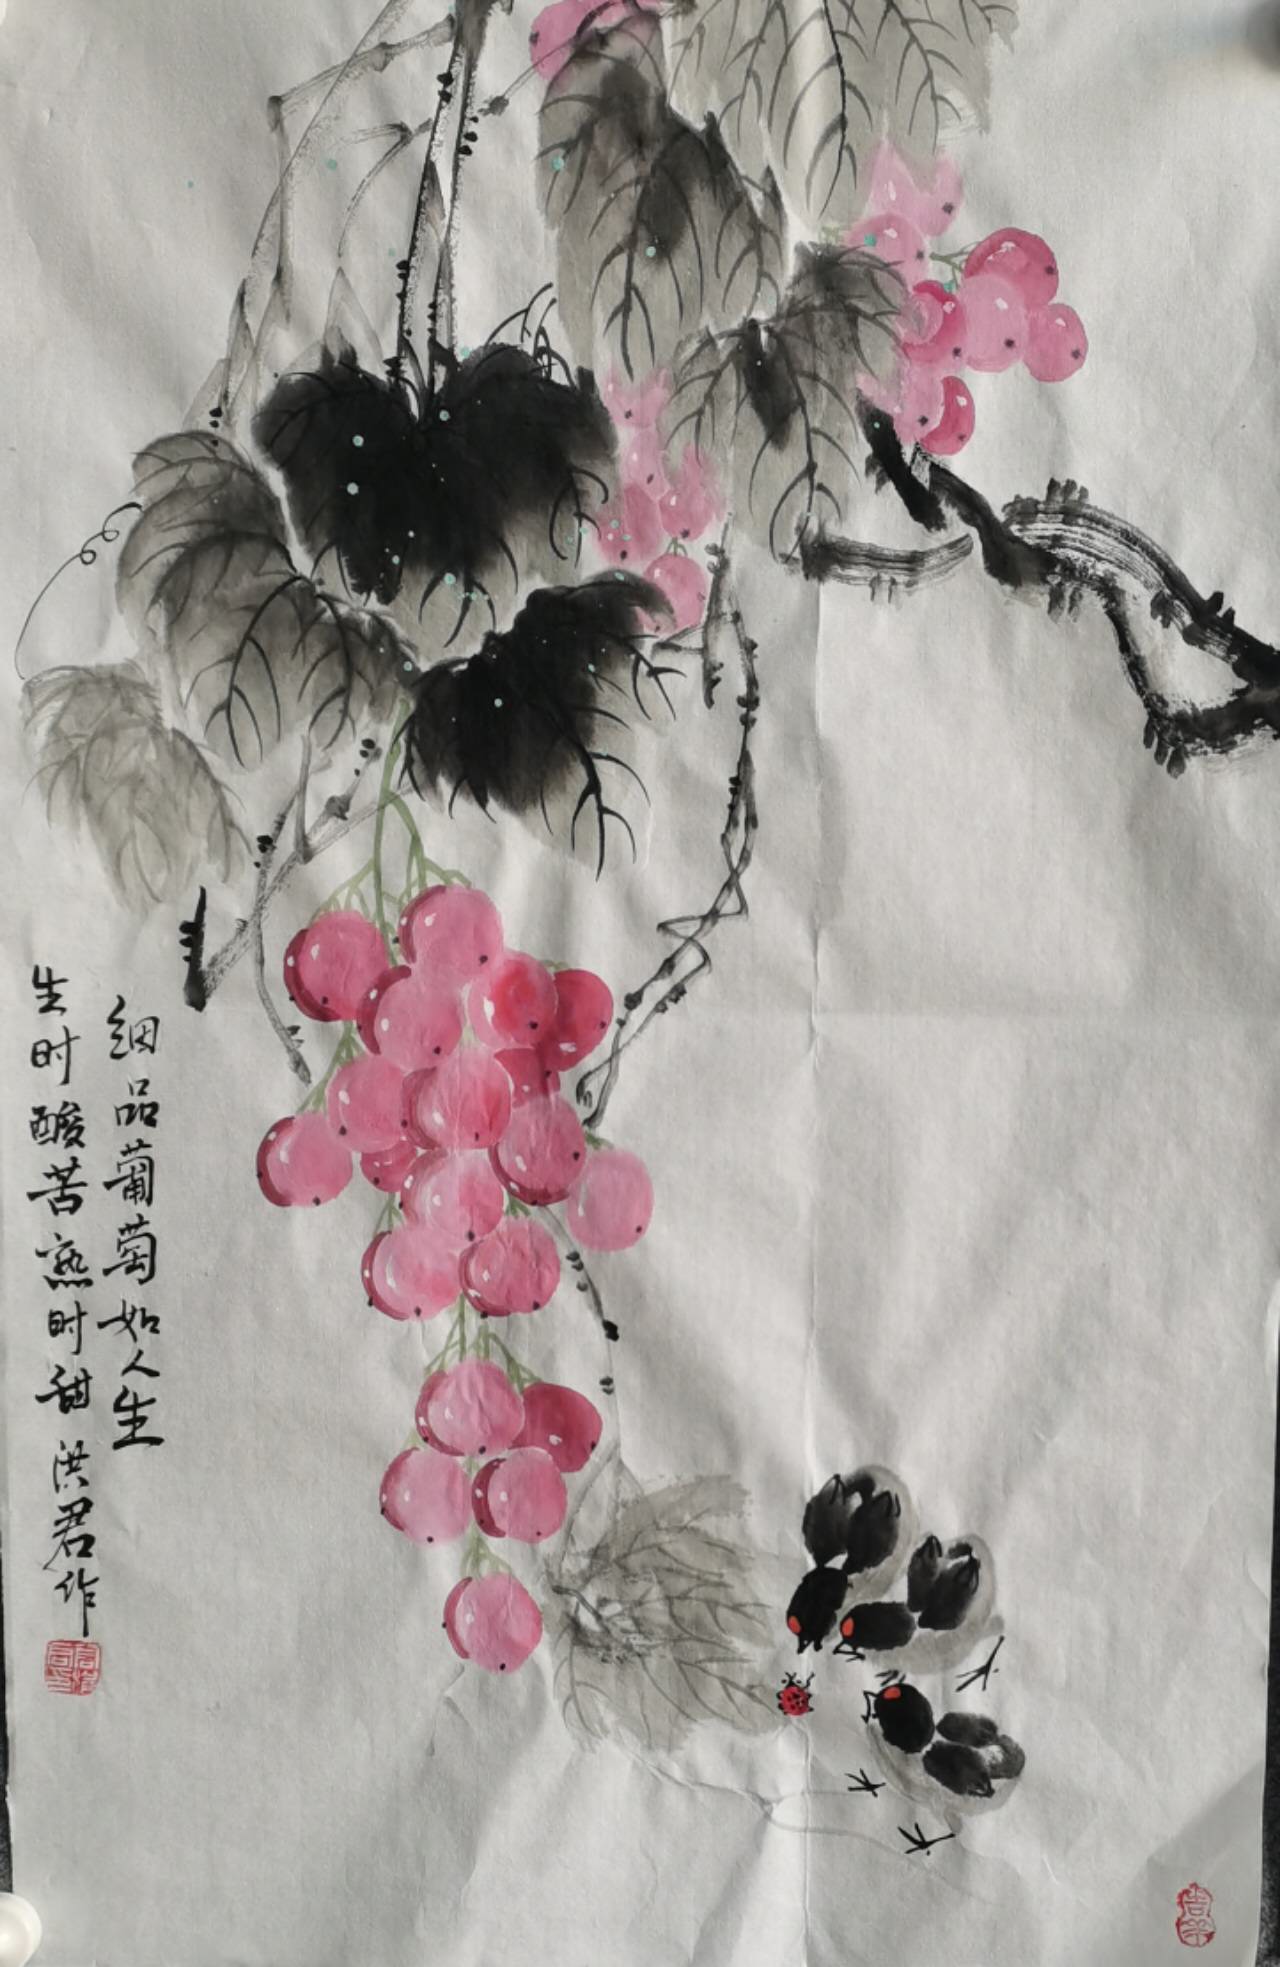 细品葡萄如人生
生时酸苦熟时甜 洪君作